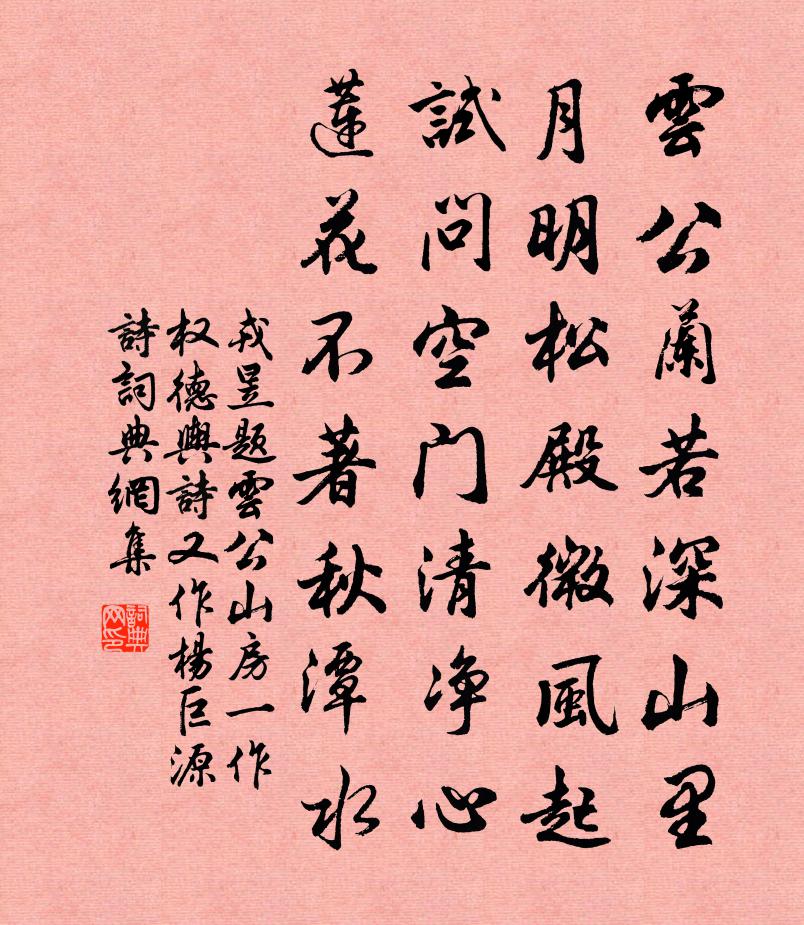 雲公蘭若深山里
月明松殿微風起
試問空门清净心
蓮花不著秋潭水
戎昱题雲公山房一作
权德輿詩又作楊巨源
詩詞典網集
詞典網印